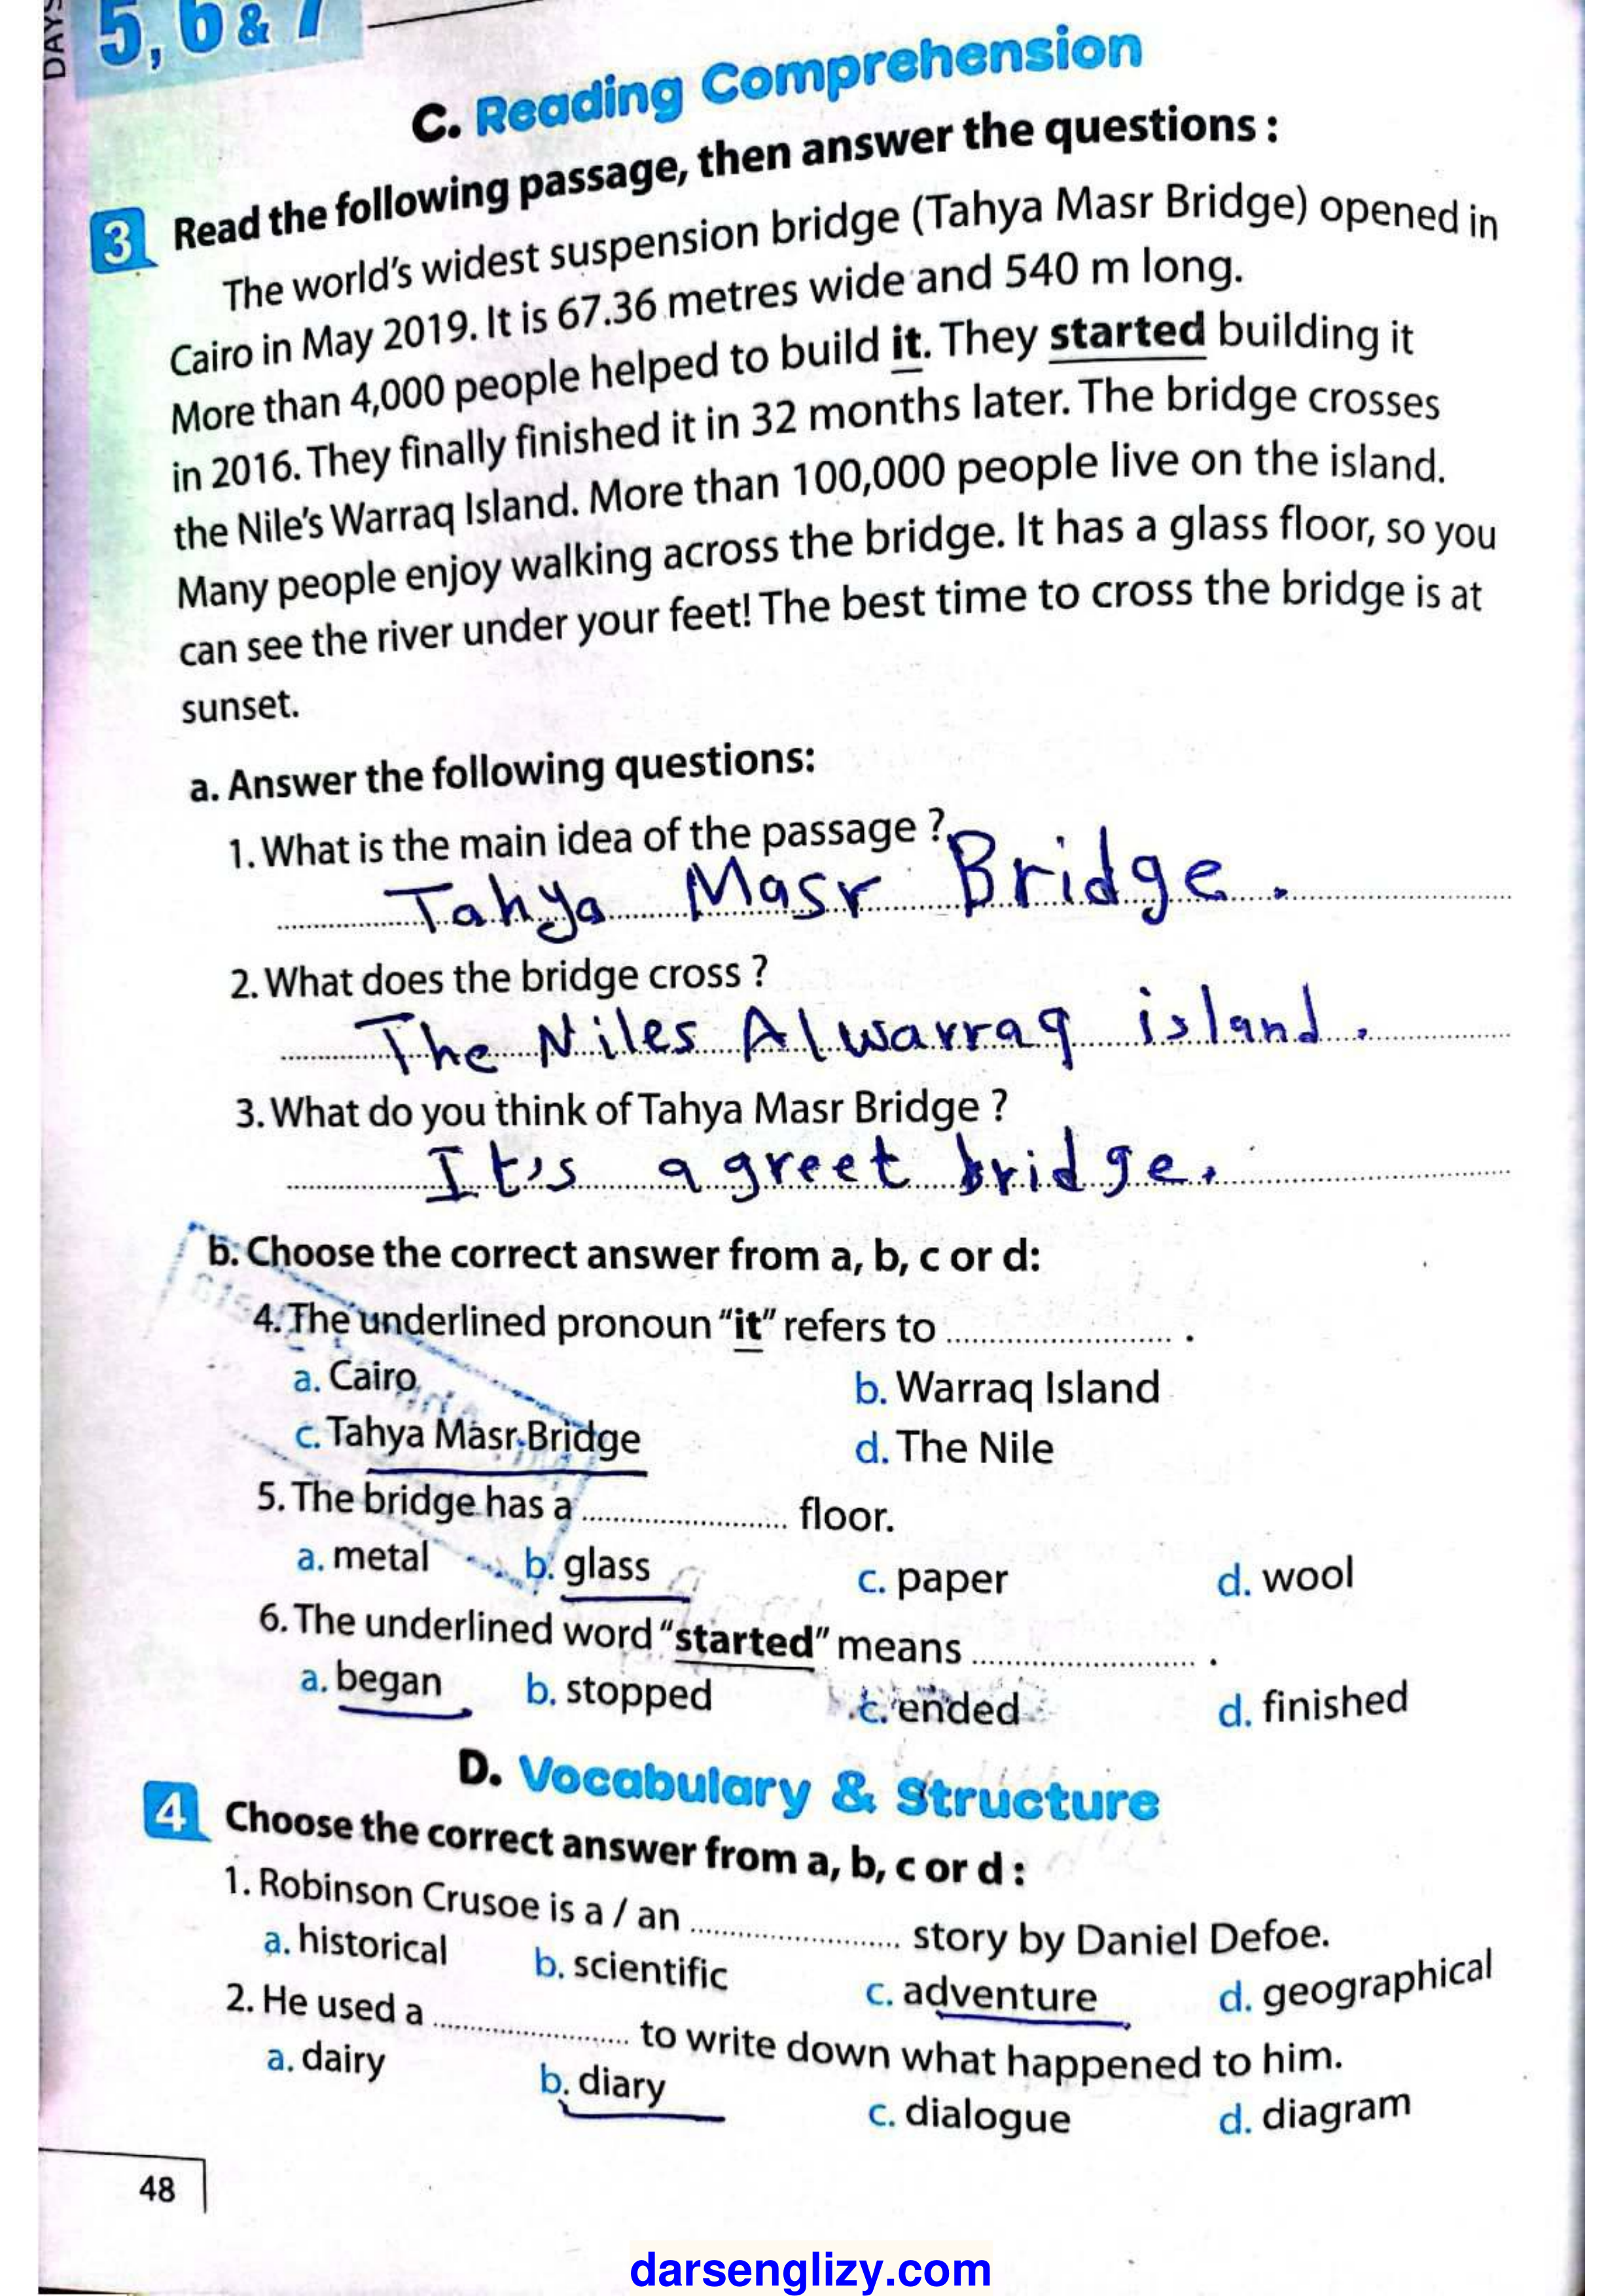 DAYS
5, 6 & 7
C. Reading Comprehension
3 Read the following passage, then answer the questions :
The world's widest suspension bridge (Tahya Masr Bridge) opened in
Cairo in May 2019. It is 67.36 metres wide and 540 m long.
More than 4,000 people helped to build it. They started building it
in 2016. They finally finished it in 32 months later. The bridge crosses
the Nile's Warraq Island. More than 100,000 people live on the island.
Many people enjoy walking across the bridge. It has a glass floor, so you
can see the river under your feet! The best time to cross the bridge is at
sunset.
a. Answer the following questions:
1. What is the main idea of the passage ?
Tahya Masr Bridge.
2. What does the bridge cross ?
The Niles Alwarraq island.
3. What do you think of Tahya Masr Bridge ?
It's a greet bridge.
b. Choose the correct answer from a, b, c or d:
4. The underlined pronoun "it" refers to .......................... .
a. Cairo b. Warraq Island
c. Tahya Masr Bridge d. The Nile
5. The bridge has a .......................... floor.
a. metal b. glass c. paper d. wool
6. The underlined word "started" means .......................... .
a. began b. stopped c. ended d. finished
D. Vocabulary & Structure
4 Choose the correct answer from a, b, c or d :
1. Robinson Crusoe is a / an .......................... story by Daniel Defoe.
a. historical b. scientific c. adventure d. geographical
2. He used a .......................... to write down what happened to him.
a. dairy b. diary c. dialogue d. diagram
48
darsenglizy.com